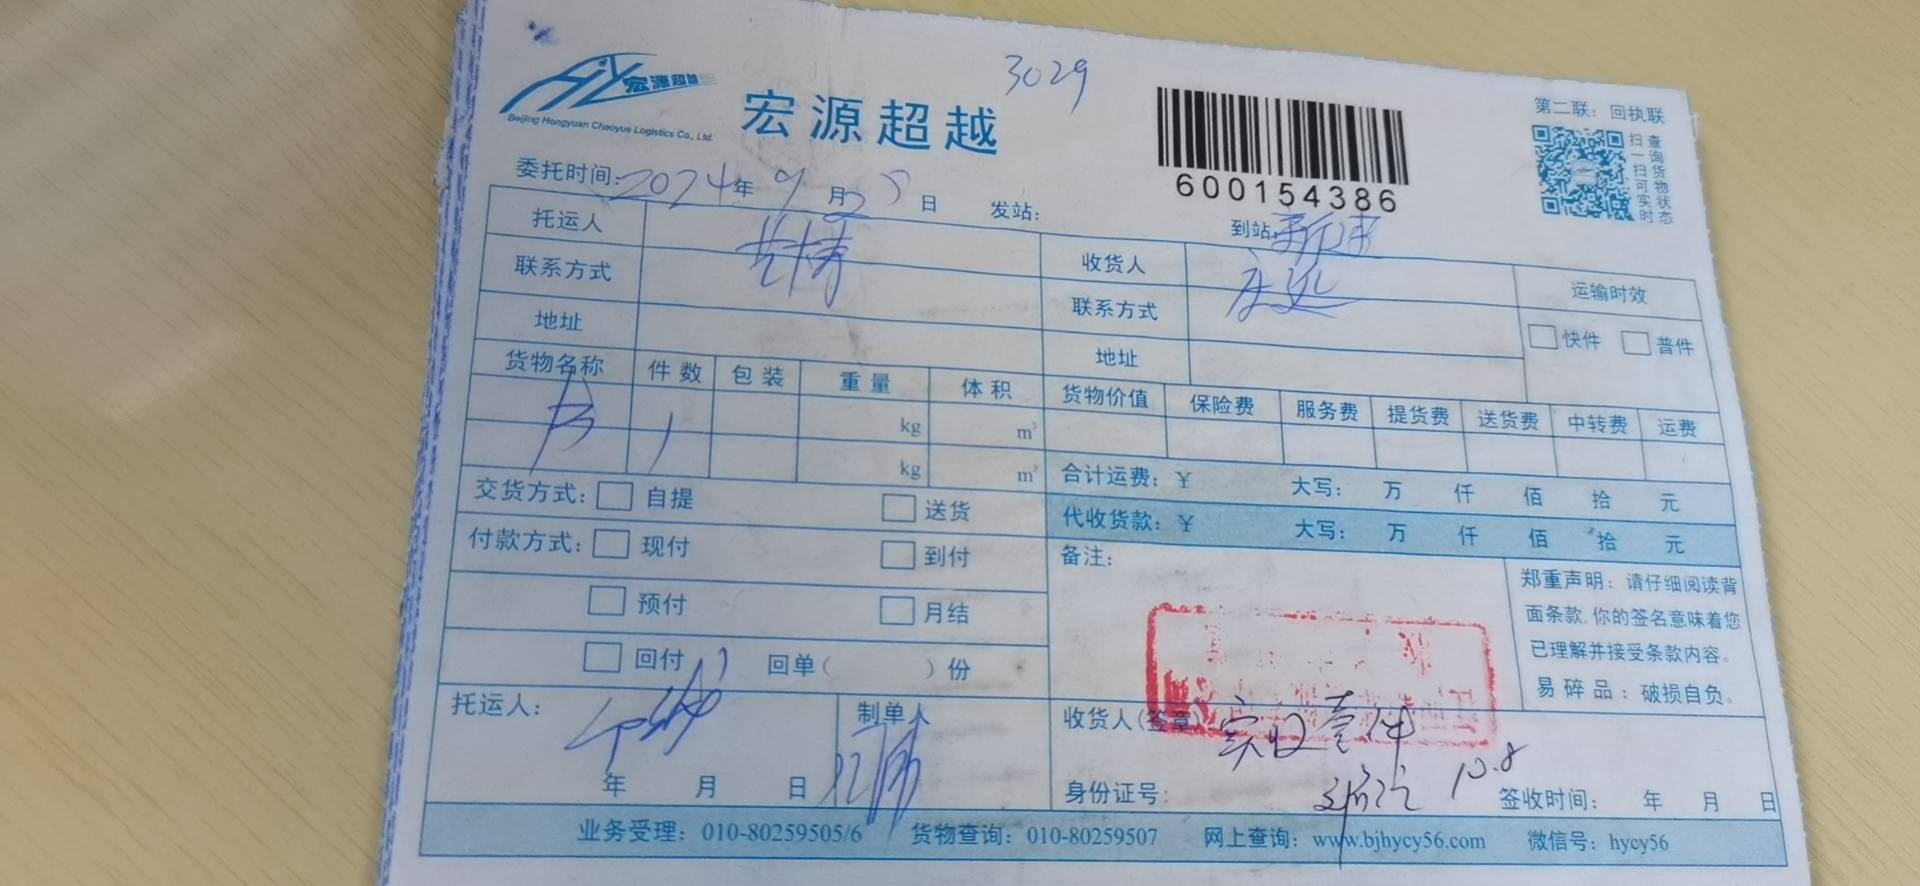 宏源超越
Beijing Hongyuan Chaoyue Logistics Co., Ltd.
宏源超越
3029
600154386
第二联：回执联
扫一扫可实时
查询货物状态
委托时间：2024年9月25日 发站： 到站：新疆
托运人
收货人
运输时效
联系方式
联系方式
快件 普件
地址
地址
货物名称 件数 包装 重量 体积 货物价值 保险费 服务费 提货费 送货费 中转费 运费
书 1 kg m³
kg m³
合计运费：￥ 大写： 万 仟 佰 拾 元
交货方式： 自提 送货
代收货款：￥ 大写： 万 仟 佰 拾 元
付款方式： 现付 到付
备注：
预付 月结
回付 回单（ ）份
郑重声明：请仔细阅读背
面条款，你的签名意味着您
已理解并接受条款内容。
易碎品：破损自负。
托运人： 制单人 收货人(签章) 实收壹件
10.8
年 月 日 身份证号： 签收时间： 年 月 日
业务受理：010-80259505/6 货物查询：010-80259507 网上查询：www.bjhycy56.com 微信号：hycy56